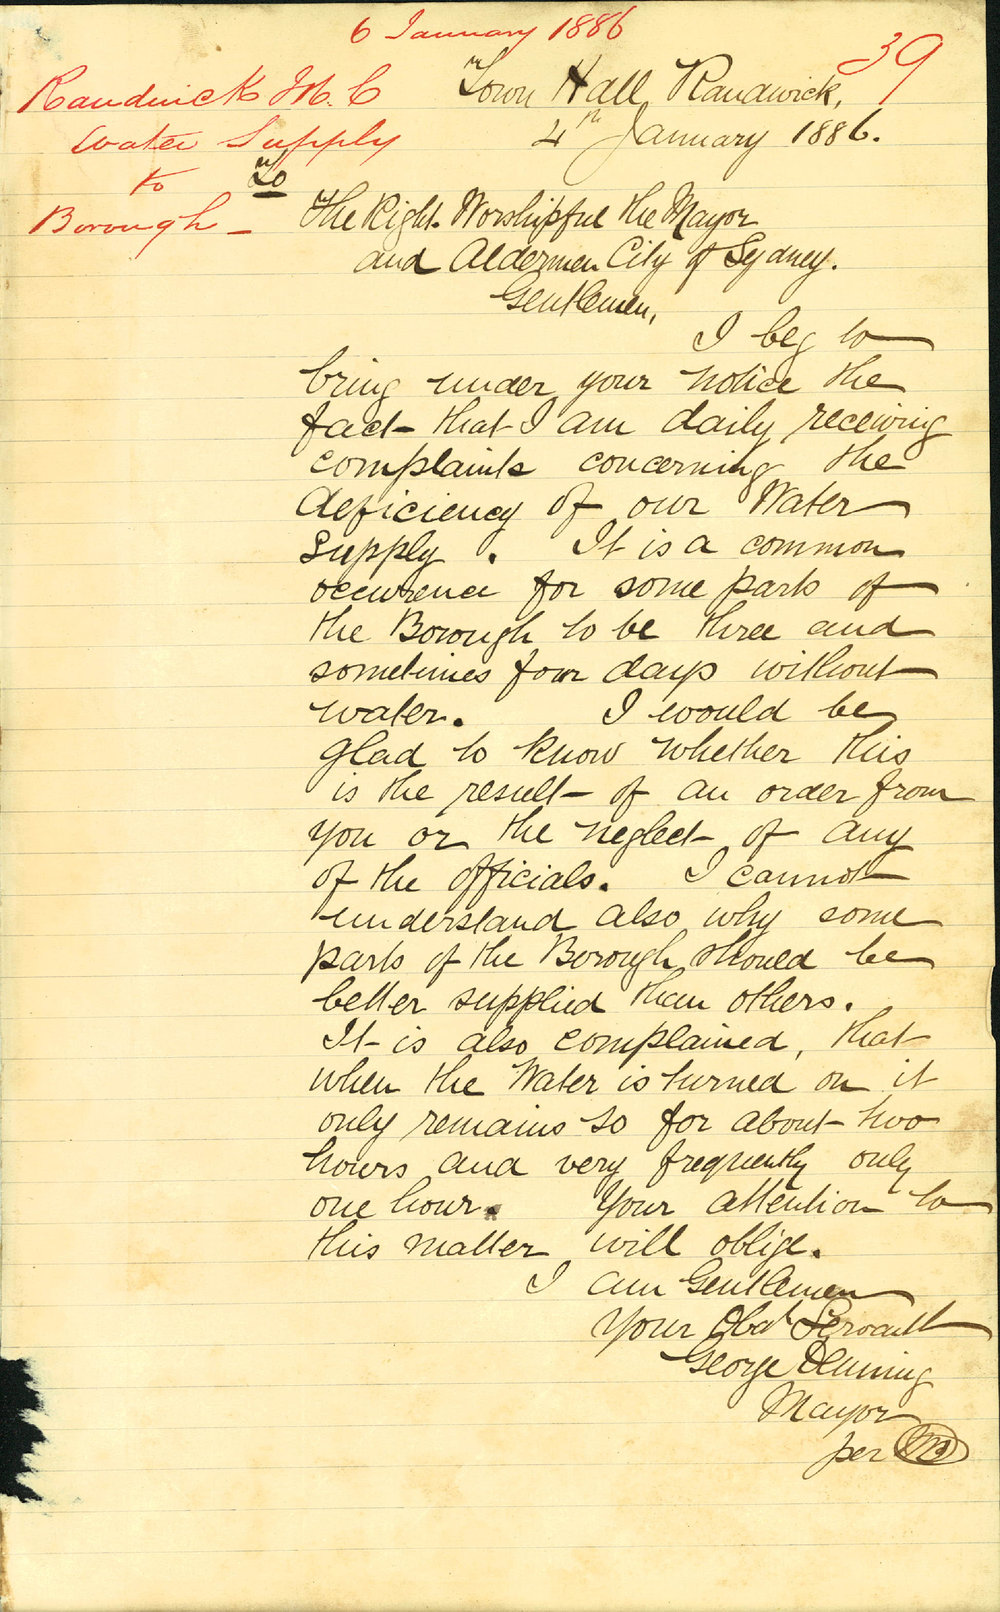 6 January 1886
39
Randwick M. C
Water Supply
to
Borough -
Town Hall Randwick,
4th January 1886.
To
The Right Worshipful the Mayor
and Aldermen City of Sydney.
Gentlemen,
I beg to
bring under your notice the
fact that I am daily receiving
complaints concerning the
deficiency of our Water
Supply. It is a common
occurrence for some parts of
the Borough to be three and
sometimes four days without
water. I would be
glad to know whether this
is the result of an order from
you or the neglect of any
of the officials. I cannot
understand also why some
parts of the Borough should be
better supplied than others.
It is also complained, that
when the Water is turned on it
only remains so for about two
hours and very frequently only
one hour. Your attention to
this matter will oblige.
I am Gentlemen
Your Obdt Servant
George Denning
Mayor
per